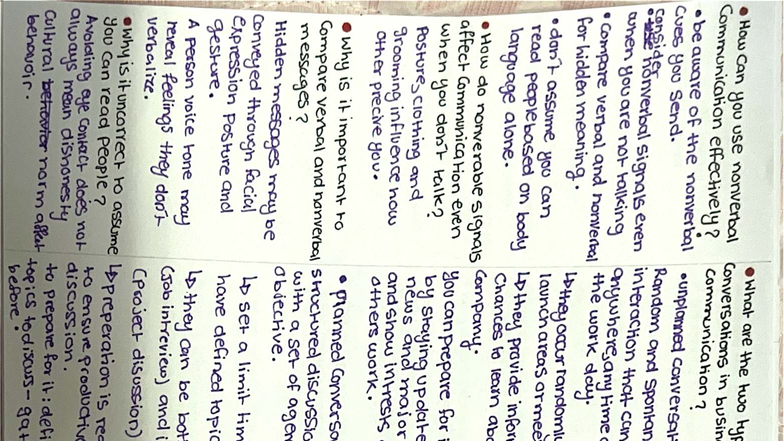 • How can you use nonverbal
Communication effectively?
• be aware of the nonverbal
cues you send.
• consider nonverbal signals even
when you are not talking
• Compare verbal and nonverbal
for hidden meaning.
• don't assume you can
read people based on body
language alone.
• How do nonverable signals
affect communication even
when you don't talk?
Posture, clothing and
grooming influence how
other precive you.
• Why is it important to
Compare verbal and nonverbal
messages?
Hidden messages may be
conveyed through facial
expression posture and
gesture.
A person voice tone may
reveal feelings they don't
verbalize.
• Why is it uncorrect to assume
you can read people?
Avoiding eye contact does not
always mean dishonesty
cultural behavior norm affect
behavoir.
• What are the two ty
Conversations in busin
communication?
• unplanned conversat
Random and spontan
interaction that can
anywhere, any time o
the work day.
↳ they occur randomly
launch areas or mee
↳ they provide inform
Chances to learn abo
Company.
you can prepare for i
by staying update
news and major
and show intresrs
others work.
• planned Conversa
structured discussio
with a set of agen
objective.
↳ set a limit tim
have defined topic
↳ they can be bot
(Job intreview) and i
(project discussion)
↳ preperation is re
to ensure productiv
discussion.
to prepare for it: defi
topics to discuss - gat
before.